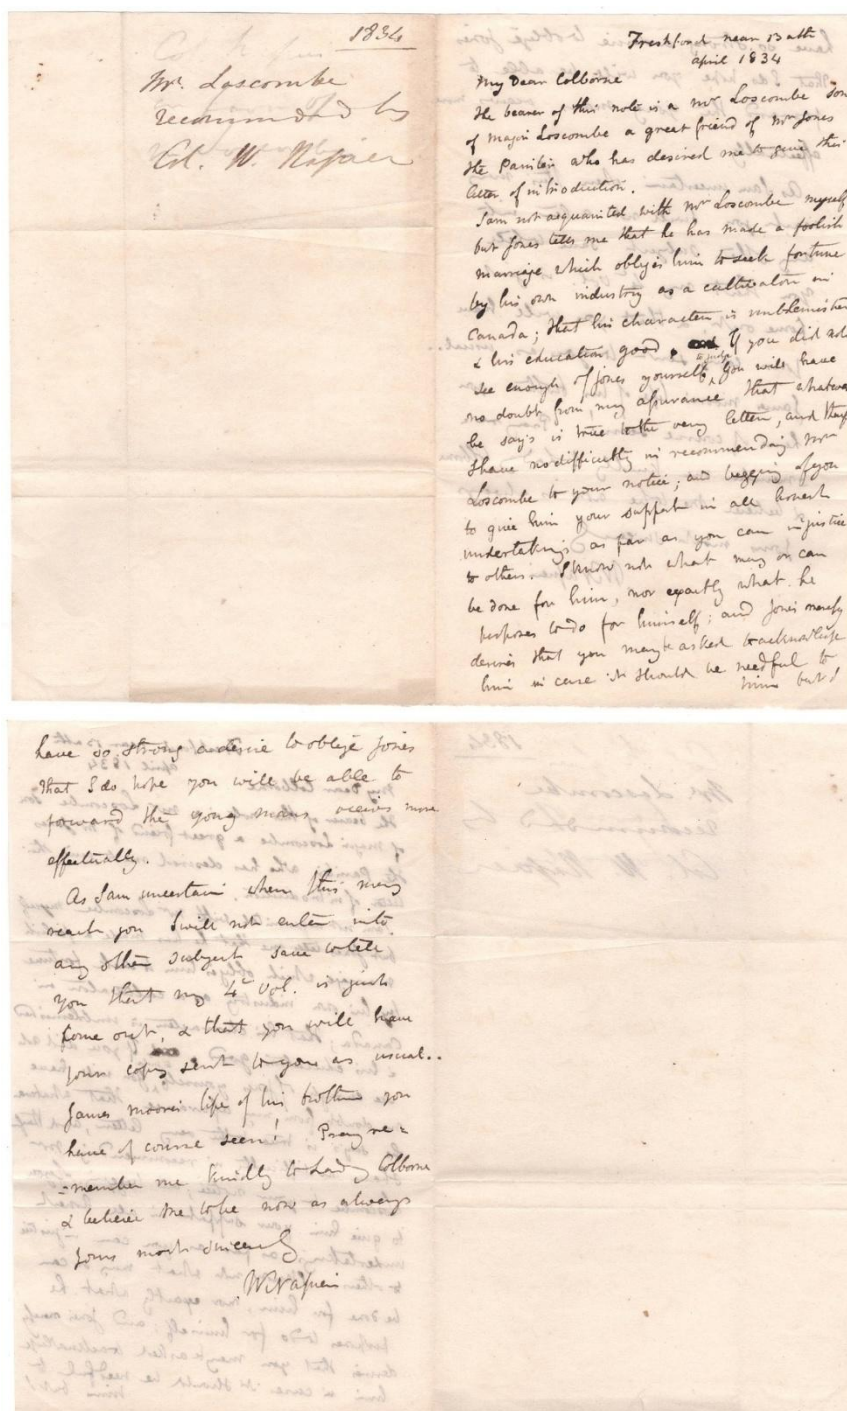 1834
Mr. Loscombe
recommended by
Col. W. Napier
Freshford near Bath
April 1834
My Dear Colborne
The bearer of this note is a Mr Loscombe son
of Major Loscombe a great friend of Mr Jones
the Painter who has desired me to give this
letter of introduction.
I am not acquainted with Mr Loscombe myself
but Jones tells me that he has made a foolish
marriage which obliges him to seek fortune
by his own industry as a cultivator in
Canada; that his character is unblemished
& his education good. If you did not
see enough of Jones yourself to judge, you will have
no doubt from my assurance that whatever
he says is true to the very letter, and thus
I have no difficulty in recommending Mr
Loscombe to your notice; and begging of you
to give him your support in all honest
undertakings as far as you can in justice
to others. I know not what may or can
be done for him, nor exactly what he
purposes to do for himself; and Jones merely
desires that you may be asked to acknowledge
him in case it should be needful to
him but I
have so strong a desire to oblige Jones
that I do hope you will be able to
forward the young mans views more
effectually.
As I am uncertain when this may
reach you I will not enter into
any other subject save to tell
you that my 4th Vol. is just
come out, & that you will have
your copy sent to you as usual..
James Moores life of his brother you
have of course seen! Pray re=
=member me kindly to Lady Colborne
& believe me to be now as always
yours most sincerely
W Napier